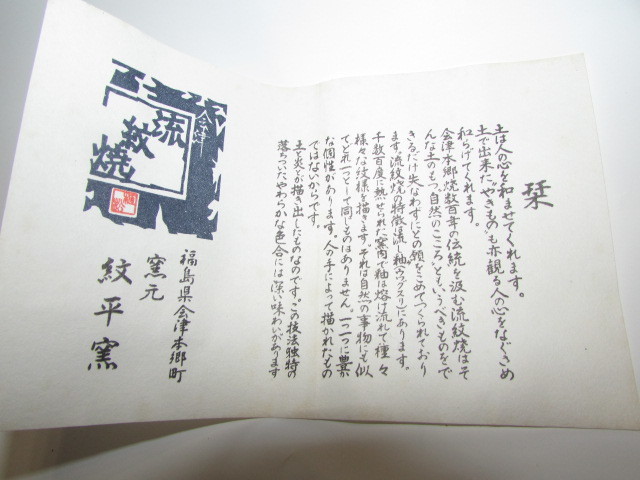 栞
土は人の心を和ませてくれます。
土で出来た“やきもの”も亦観る人の心をなぐさめ
和らげてくれます。
会津本郷焼数百年の伝統を汲む流紋焼はそ
んな土のもつ、自然のこころともいうべきものをで
きるだけ失なわずにとの願をこめてつくられており
ます。流紋焼の特徴は流し釉(ウワグスリ)にあります。
千数百度に熱せられた窯内で釉は熔け流れて種々
様々な紋様を描きます。それは自然の事物にも似
てどれ一つとして同じものはありません。一つ一つに豊か
な個性があります。人の手によって描かれたもの
ではないからです。
土と炎とが描き出したものなのです。この技法独特の
落ちついたやわらかな色合には深い味わいがあります
会津
流紋焼
福島県会津本郷町
窯元
紋平窯